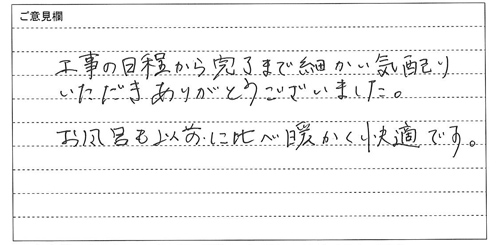 ご意見欄
工事の日程から完了まで細かい気配り
いただきありがとうございました。
お風呂も以前に比べ暖かく快適です。